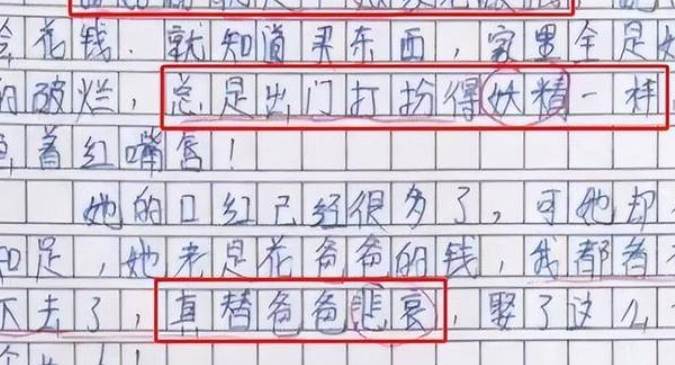 会花钱.就知道买东西,家里全是她
的破烂,总是出门打扮得妖精一样
着红嘴唇!
她的口红已经很多了,可她却
知足,她老是花爸爸的钱,我都看不
下去了,真替爸爸悲哀,娶了这么